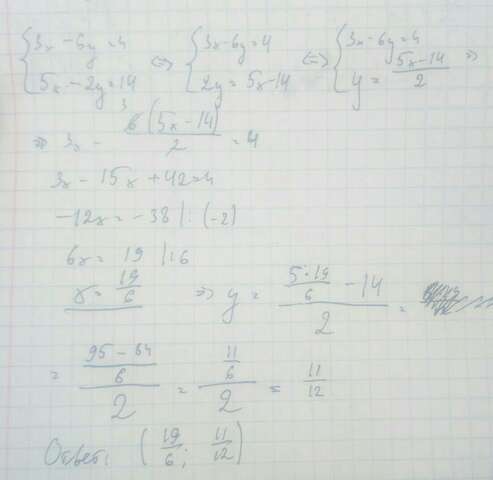 {3x - 6y = 4 <=> {3x - 6y = 4 <=> {3x - 6y = 4
5x - 2y = 14 2y = 5x - 14 y = (5x - 14)/2 =>
=> 3x - 6(5x - 14)/2 = 4
3
3x - 15x + 42 = 4
-12x = -38 |: (-2)
6x = 19 |: 6
x = 19/6 => y = (5·19/6 - 14)/2 =
= ((95 - 84)/6)/2 = (11/6)/2 = 11/12
Ответ: (19/6; 11/12)